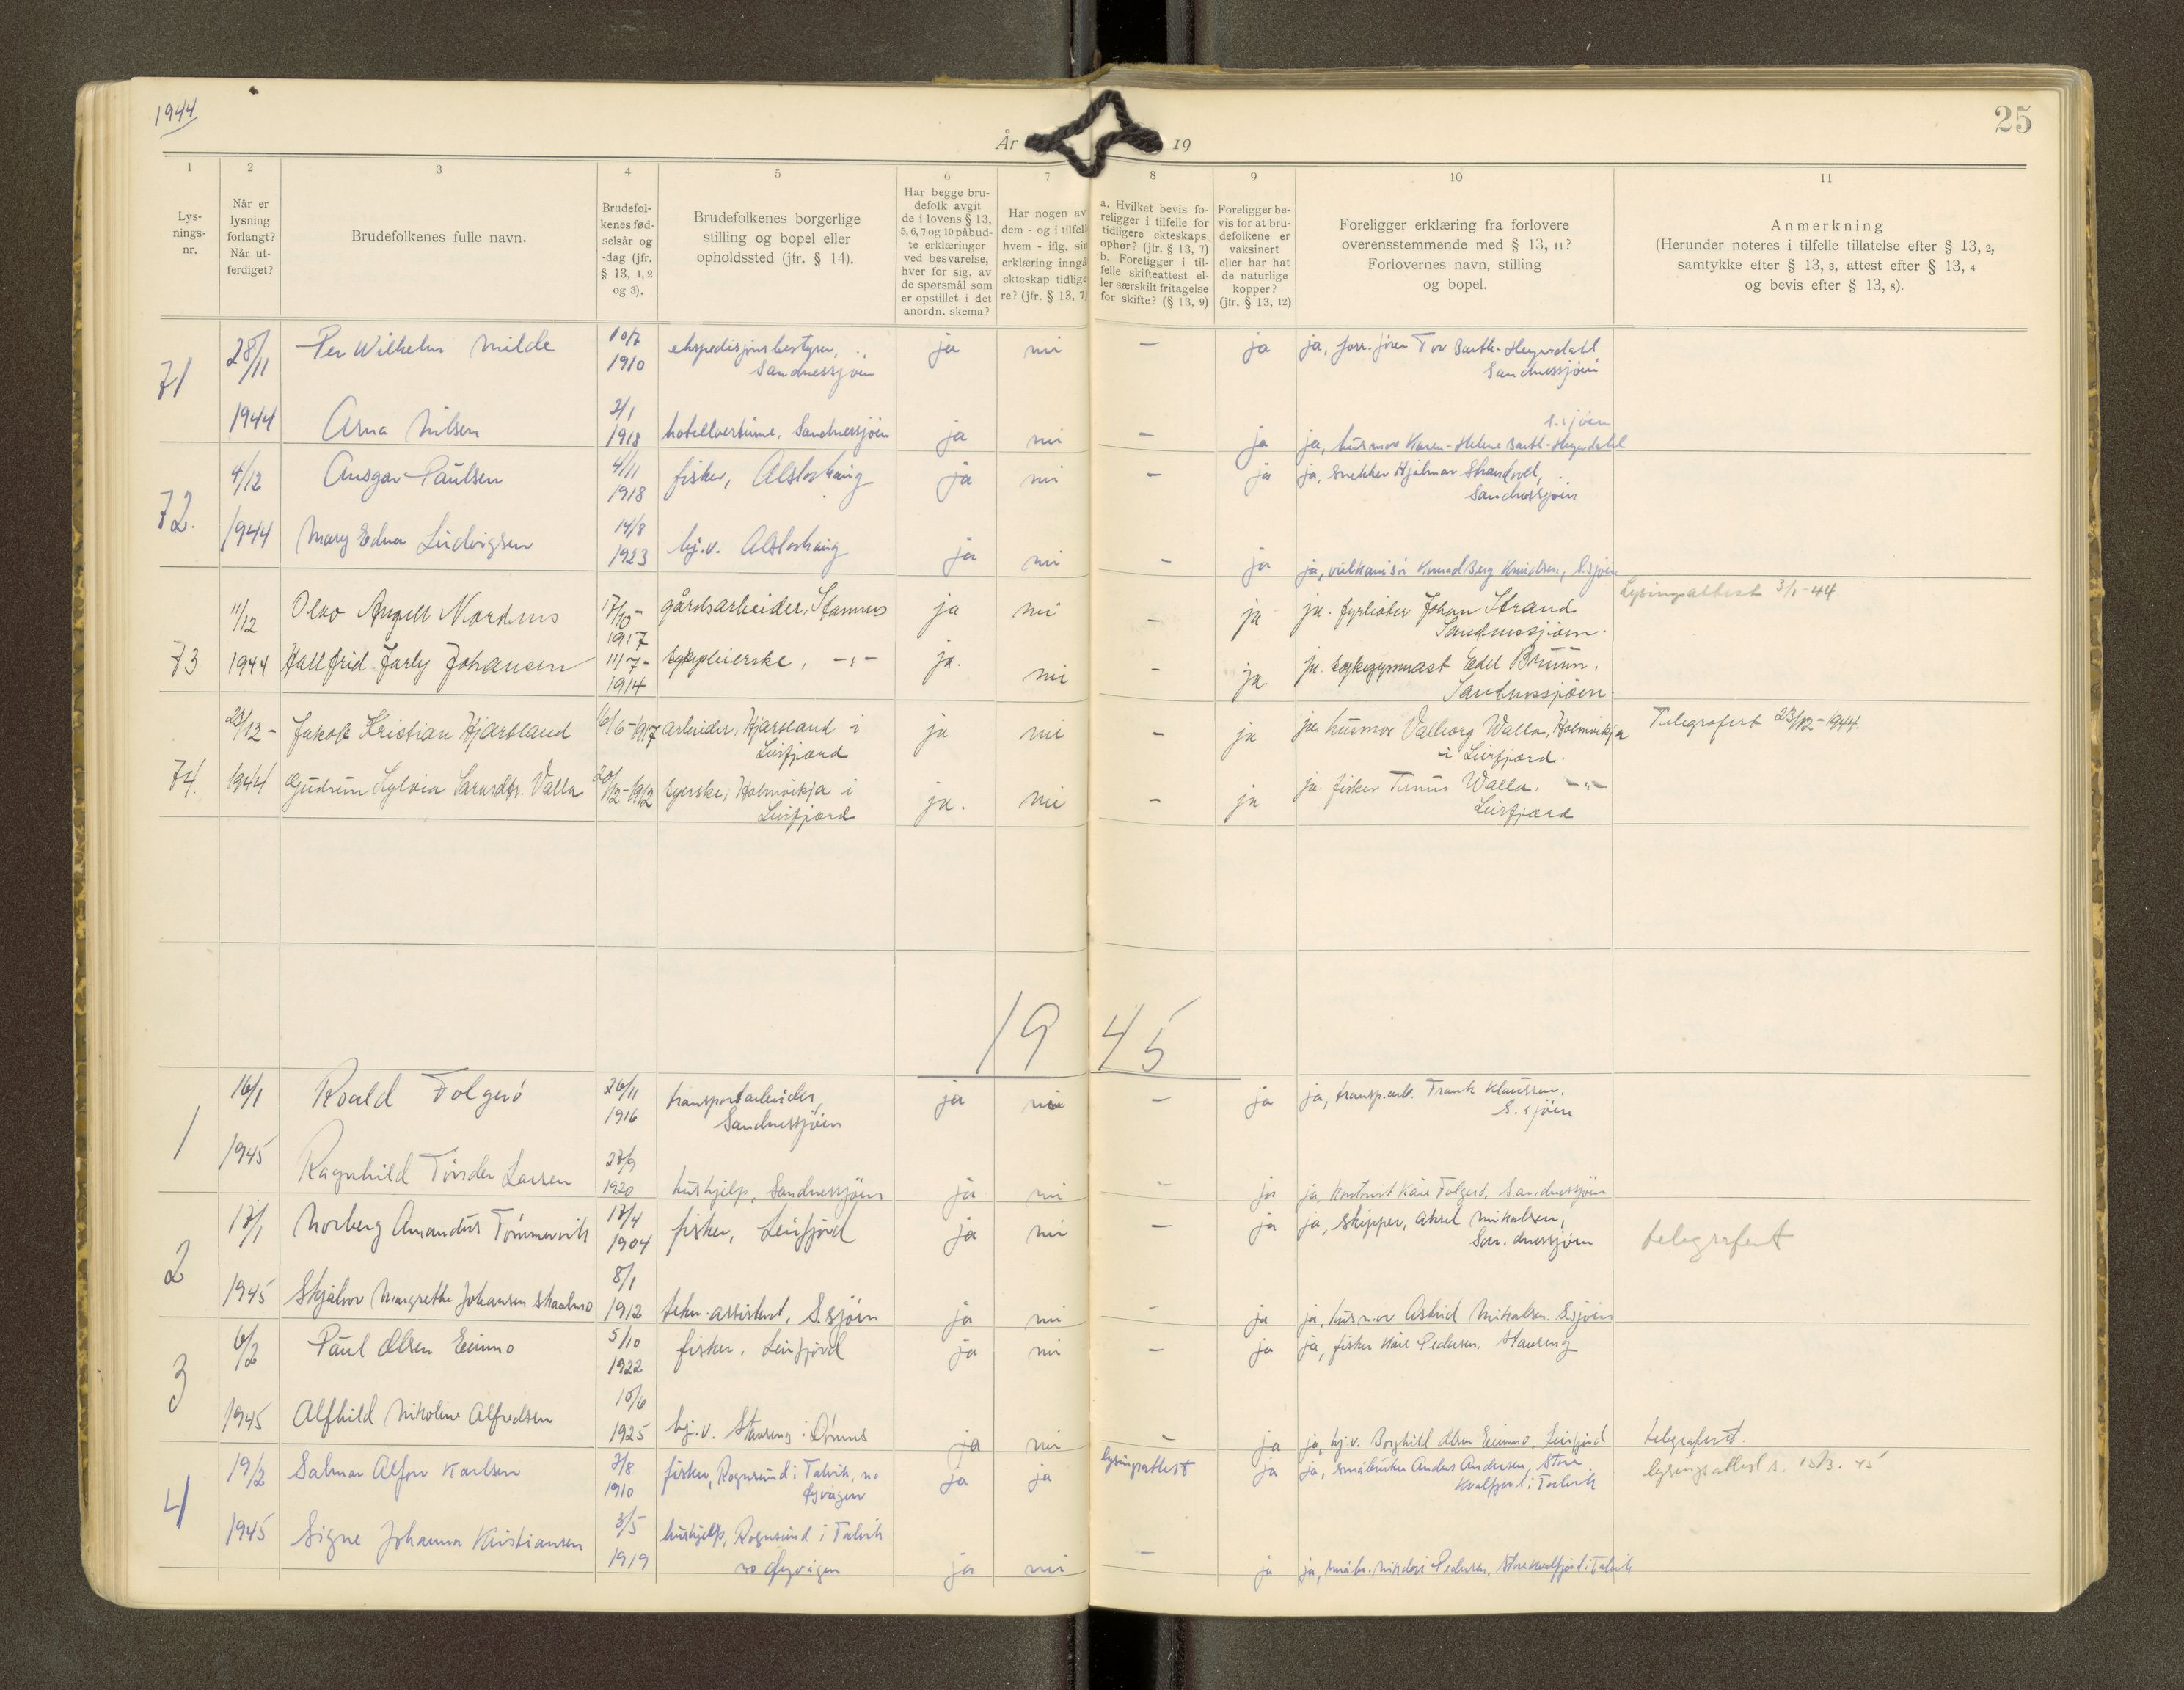 1944
25
År
19
1
Lys-
nings-
nr.
2
Når er
lysning
forlangt?
Når ut-
ferdiget?
3
Brudefolkenes fulle navn.
4
Brudefol-
kenes fød-
selsår og
-dag (jfr.
§ 13, 1, 2
og 3).
5
Brudefolkenes borgerlige
stilling og bopel eller
opholdssted (jfr. § 14).
6
Har begge bru-
defolk avgit
de i lovens § 13,
5, 6, 7 og 10 påbud-
te erklæringer
ved besvarelse,
hver for sig, av
de spørsmål som
er opstillet i det
anordn. skema?
7
Har nogen av
dem - og i tilfell
hvem - iflg. sin
erklæring inngå
ekteskap tidlige
re? (jfr. § 13, 7)
8
a. Hvilket bevis fo-
religger i tilfelle for
tidligere ekteskaps
ophør? (jfr. § 13, 7)
b. Foreligger i til-
felle skifteattest el-
ler særskilt fritagelse
for skifte? (§ 13, 9)
9
Foreligger be-
vis for at bru-
defolkene er
vaksinert
eller har hat
de naturlige
kopper?
(jfr. § 13, 12)
10
Foreligger erklæring fra forlovere
overensstemmende med § 13, 11?
Forlovernes navn, stilling
og bopel.
11
Anmerkning
(Herunder noteres i tilfelle tillatelse efter § 13, 2,
samtykke efter § 13, 3, attest efter § 13, 4
og bevis efter § 13, 8).
71
28/11
1944
Per Wilhelm Milde
10/7
1910
ekspedisjonsbestyrer,
Sandnessjöen
ja
nei
—
ja
ja, Tor Barth-Heyerdahl,
Sandnessjöen
Arna Nilsen
2/1
1918
hotellvertinne, Sandnessjöen
ja
nei
—
ja
S.sjöen
ja, husmor Karen-Helene Barth-Heyerdahl
72.
4/12
1944
Ansgar Paulsen
4/11
1918
fisker, Alstahaug
ja
nei
—
ja
ja, snekker Hjalmar Strandvel,
Sandnessjöen
Mary Edna Ludvigsen
14/8
1923
hj.v. Alstahaug
ja
nei
—
ja
ja, vulkanisör Konrad Berg Knudsen, S.sjöen
73
11/12
1944
Olav Angell Nordnes
17/10-
1917
gårdsarbeider, Stamnes
ja
nei
—
ja
ja. fyrböter Johan Strand
Sandnessjöen.
Lysingsattest 3/1-44
Hallfrid Jarly Johansen
11/7-
1914
sykepleierske, -"-
ja.
nei
—
ja
ja. sykegymnast Edel Bruun.
Sandnessjöen.
74.
23/12-
1944
Jakob Kristian Hjartland
16/6-1917
arbeider, Hjartland i
Leirfjord
ja
nei
—
ja
ja. husmor Valborg Walla, Holmvikja
i Leirfjord.
Telegrafert 23/12-1944.
Gudrun Sylvia Larsdtr. Valla
20/12-1912
syerske, Holmvikja i
Leirfjord
ja.
nei
—
ja
ja. fisker Tinus Walla. -"-
Leirfjord
1945
1
16/1
1945
Roald Folgerö
26/11
1916
transportarbeider,
Sandnessjöen
ja
nei
—
ja
ja, transp.arb. Frank Klaussen.
S.sjöen
Ragnhild Tönder Larsen
27/9
1920
hushjelp, Sandnessjöen
ja
nei
—
ja
ja, kontorist Kåre Folgerö, Sandnessjöen
2
17/1
1945
Norberg Amandus Tömmervik
17/4
1904
fisker, Leirfjord
ja
nei
—
ja
ja, skipper, Aksel Mikalsen,
Sandnessjöen
telegrafert
Skjalvor Margrethe Johansen Skaalmo
8/1
1912
tekn.assistent, S.sjöen
ja
nei
—
ja
ja, husmor Astrid Mikalsen. S.sjöen
3
6/2
1945
Paul Olsen Eiinmo
5/10
1922
fisker, Leirfjord
ja
nei
—
ja
ja, fisker Kåre Pedersen, Stavseng
Alfhild Nikoline Alfredsen
10/6
1925
hj.v. Stavseng i Dönnes
ja
nei
—
ja
ja, hj.v. Borghild Olsen Eiinmo, Leirfjord
telegrafert.
4
19/2
1945
Salmar Alfon Karlsen
3/8
1910
fisker, Rognsund i Talvik, no
Öyvågen
ja
ja
lysingsattest
ja
ja, småbruker Anders Andersen, Store
Kvalfjord i Talvik
lysingsattest s. 15/3. 45
Signe Johanna Kristiansen
3/5
1919
hushjelp, Rognsund i Talvik
no Öyvågen
ja
nei
—
ja
ja, småbr. Pedersen, Storekvalfjord i Talvik